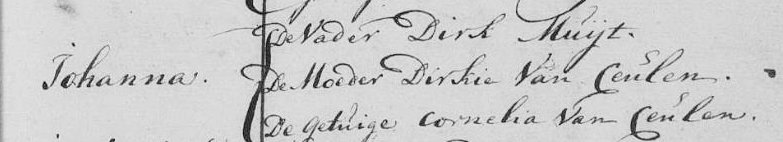 De Vader Dirk Muijt.
Johanna. De Moeder Dirkie Van Ceulen.
De getuige Cornelia Van Ceulen.